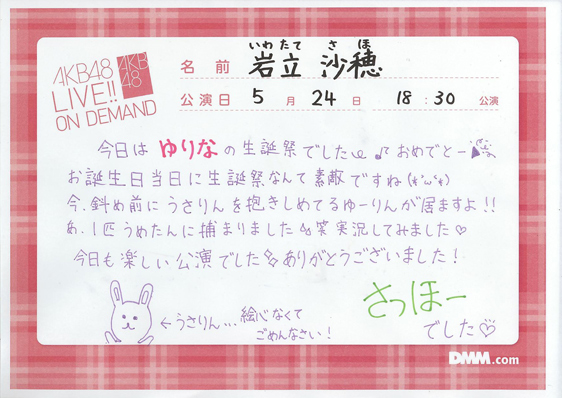 AKB48
LIVE!!
ON DEMAND
AKB
48
いわたて さほ
名前 岩立 沙穂
公演日 5月24日 18:30 公演
今日はゆりなの生誕祭でした♪おめでとー
お誕生日当日に生誕祭なんて素敵ですね(*'ω'*)
今、斜め前にうさりんを抱きしめてるゆーりんが居ますよ!!
あ、1匹うめたんに捕まりました 笑 実況してみました♡
今日も楽しい公演でした ありがとうございました!
←うさりん...絵心なくて
ごめんなさい!
さっほー
でした♡
DMM.com